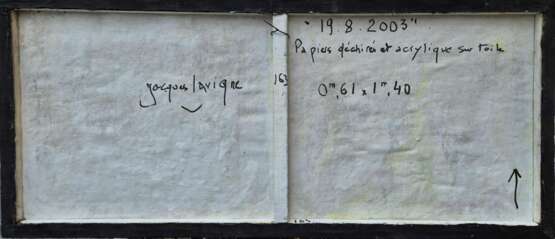 "19.8.2003"
Papiers déchirés et acrylique sur toile
Jacques Lavigne
0m,61 x 1m,40